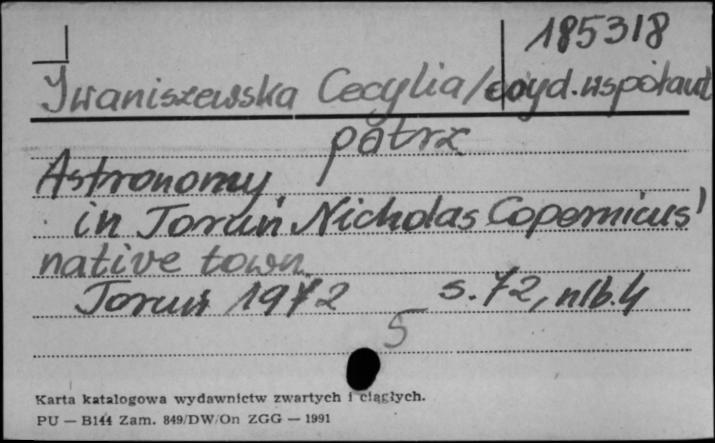 185318
Iwaniszewska Cecylia/ wyd. współaut
patrz
Astronomy
in Toruń Nicholas Copernicus'
native town.
Toruń 1972 s. 72, nlb. 4
5
Karta katalogowa wydawnictw zwartych i ciągłych.
PU — B144 Zam. 849/DW/On ZGG — 1991